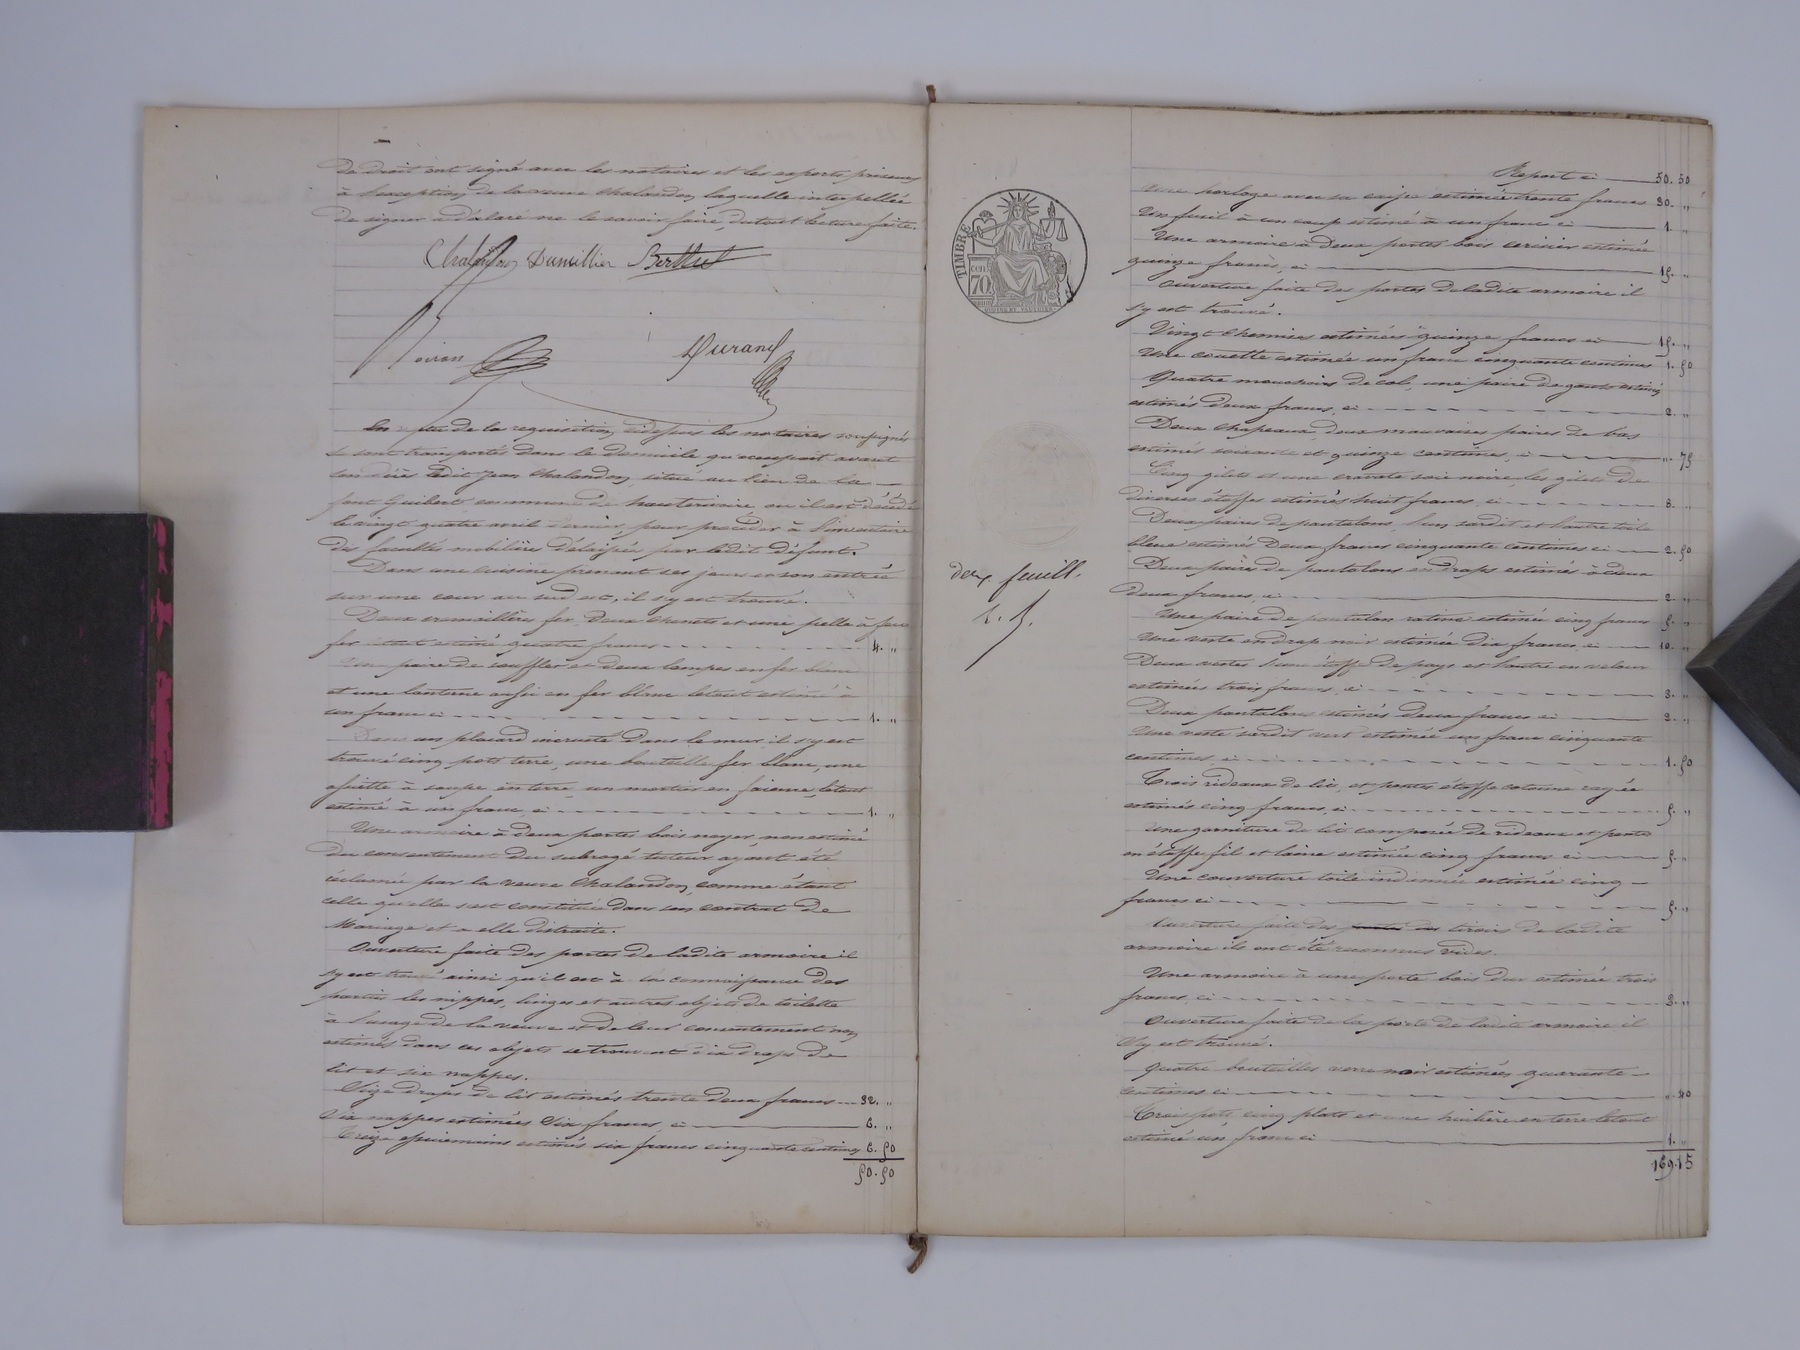 de droit ont signé avec les notaires et les experts priseurs
à l'exception de la veuve Chalandon laquelle interpellée
de signer a déclaré ne le savoir faire, du tout lecture faite.
Chalandon Dumillier Berthet
Noiron Durand
En vertu de la requisition ci dessus les notaires soussignés
se sont transportés dans le domicile qu'occupait avant
son décès ledit Jean Chalandon, situé au lieu de la
font Guibert commune de hauterivoire, ou il est décédé
le vingt quatre avril dernier, pour procéder à l'inventaire
des facultés mobilières délaissées par ledit défunt.
Dans une cuisine prenant ses jours et son entrée
sur une cour au sud est, il s'y est trouvé.
Deux cremaillères fer, deux chenets et une pelle à feu
fer letout estimé quatre francs 4. "
Une paire de soufflet et deux lampes en fer blanc
et une lanterne aussi en fer blanc letout estimé à
un franc ci 1. "
Dans un placard incrusté dans le mur il s'y est
trouvé cinq pots terre, une bouteille fer blanc, une
assiette à soupe en terre, un mortier en faience, letout
estimé à un franc, ci 1. "
Une armoire à deux portes bois noyer, non estimé
du consentement du subrogé tuteur ayant été
réclamée par la veuve Chalandon comme étant
celle qu'elle s'est constituée dans son contrat de
Mariage et a elle distraite.
Ouverture faite des portes de ladite armoire il
s'y est trouvé ainsi qu'il est à la connaissance des
parties les nippes, linges et autres objets de toilette
à l'usage de la veuve et de leur consentement non
estimés dans ces objets se trouvent dix draps de
lit et six nappes.
Seize draps de lit estimés trente deux francs 32. "
Six nappes estimées Six francs, ci 6. "
Treize essuiemains estimés six francs cinquante centimes 6. 50
50. 50
Report ci 50. 50
Une horloge avec sa caisse estimée trente francs 30. "
Un fusil à un coup estimé à un franc ci 1. "
Une armoire à deux portes bois cerisier estimée
quinze francs, ci 15. "
Ouverture faite des portes de ladite armoire il
s'y est trouvé.
Vingt chemises estimées quinze francs ci 15. "
Une couette estimée un franc cinquante centimes 1. 50
Quatre mouchoirs de col, une paire de gants estimés
estimés deux francs, ci 2. "
Deux chapeaux, deux mauvaises paires de bas
estimés soixante et quinze centimes, ci ". 75
Cinq gilets et une cravate soie noire les gilets de
diverses étoffes estimés huit francs, ci 8. "
Deux paires de pantalons, l'un sardit et l'autre toile
bleue estimés Deux francs cinquante centimes ci 2. 50
Deux paires de pantalons en draps estimés à deux
deux francs, ci 2. "
Une paire de pantalon ratine estimée cinq francs 5. "
Une veste en drap noir estimée dix francs, ci 10. "
Deux vestes l'une étoffe de pays et l'autre en velour
estimées trois francs, ci 3. "
Deux pantalons estimés Deux francs ci 2. "
Une veste sardit vert estimée un franc cinquante
centimes, ci 1. 50
Trois rideaux de lit, et pentes étoffe cotonne rayée
estimés cinq francs, ci 5. "
Une garniture de lit composée de rideaux et pente
en étoffe fil et laine estimée cinq francs ci 5. "
Une couverture toile indienne estimée cinq
francs ci 5. "
Ouverture faite des tiroirs de ladite
armoire ils ont été reconnus vides.
Une armoire à une porte bois dur estimée trois
francs, ci 3. "
Ouverture faite de la porte de ladite armoire il
s'y est trouvé.
Quatre bouteilles verre noir estimées quarante
centimes ci ". 40
Trois pots, cinq plats et une huilière en terre letout
estimé un franc ci 1. "
169.15
TIMBRE
70.
deux. feuill.